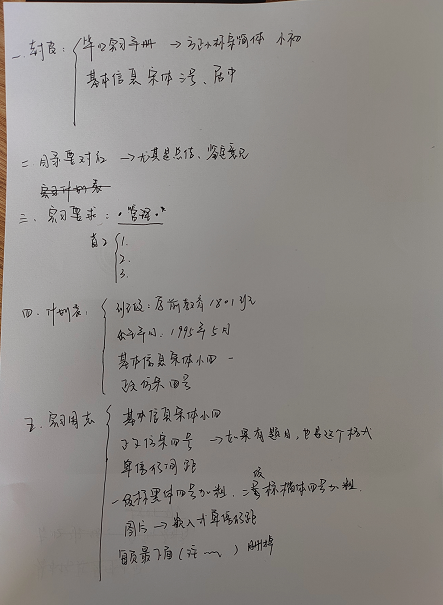 一. 封页: 毕业实习手册 → 方正小标宋简体 小初
基本信息宋体三号、居中
二 目录要对应 → 尤其是总结、鉴定意见
实习计划表
三. 实习要求: "管理"
1.
2.
3.
四. 计划表 班级: 学前教育1801班
出生年月: 1995年5月
基本信息宋体小四
正文仿宋四号
五. 实习周志 基本信息宋体小四
正文仿宋四号 → 如果有题目, 也是这个格式
单倍行间距
一级标黑体四号加粗. 二级标楷体四号加粗.
图片 → 嵌入式单倍行距
首页最下面 (注 ~~ ) 删掉